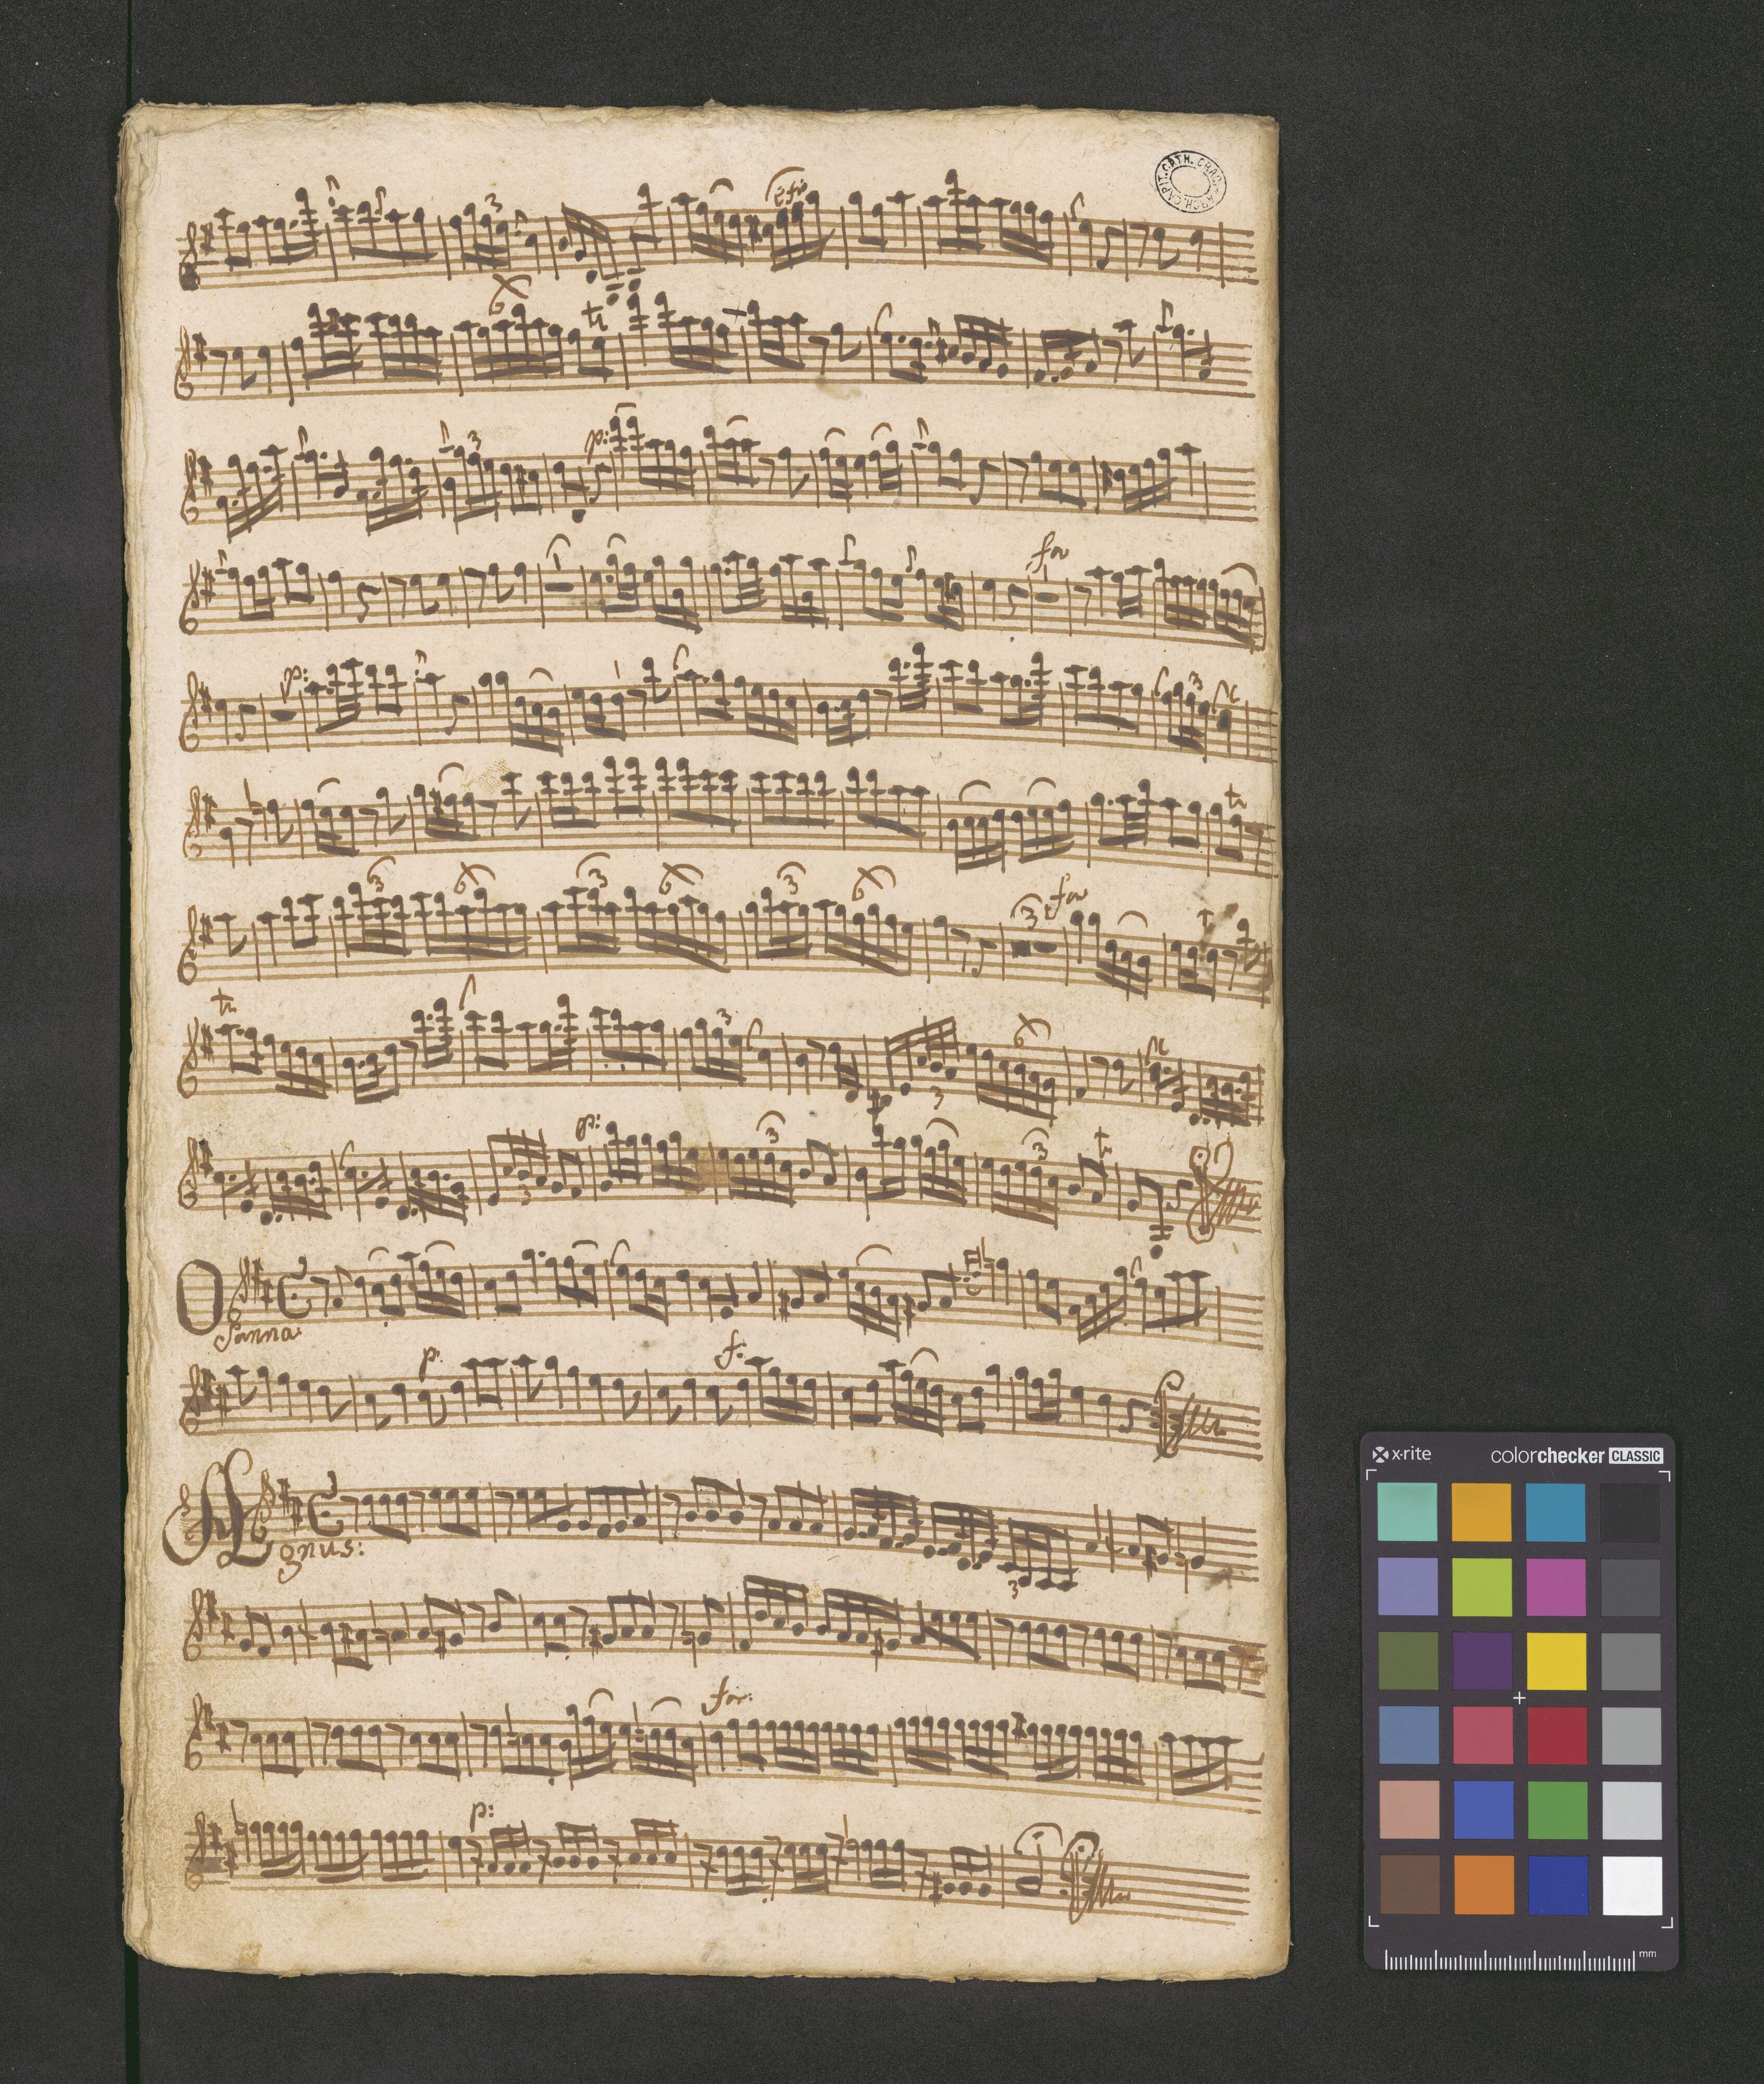 ARCH. CAPIT. CATH. CRAC.
3
6
tr
3
p:
for
p:
3
tr
3 6 3 6 3 6 3 for
tr 3 3 6
3 p: 3 3 tr
Osanna
p. f:
Agnus:
3
for:
p:
x-rite colorchecker CLASSIC
mm